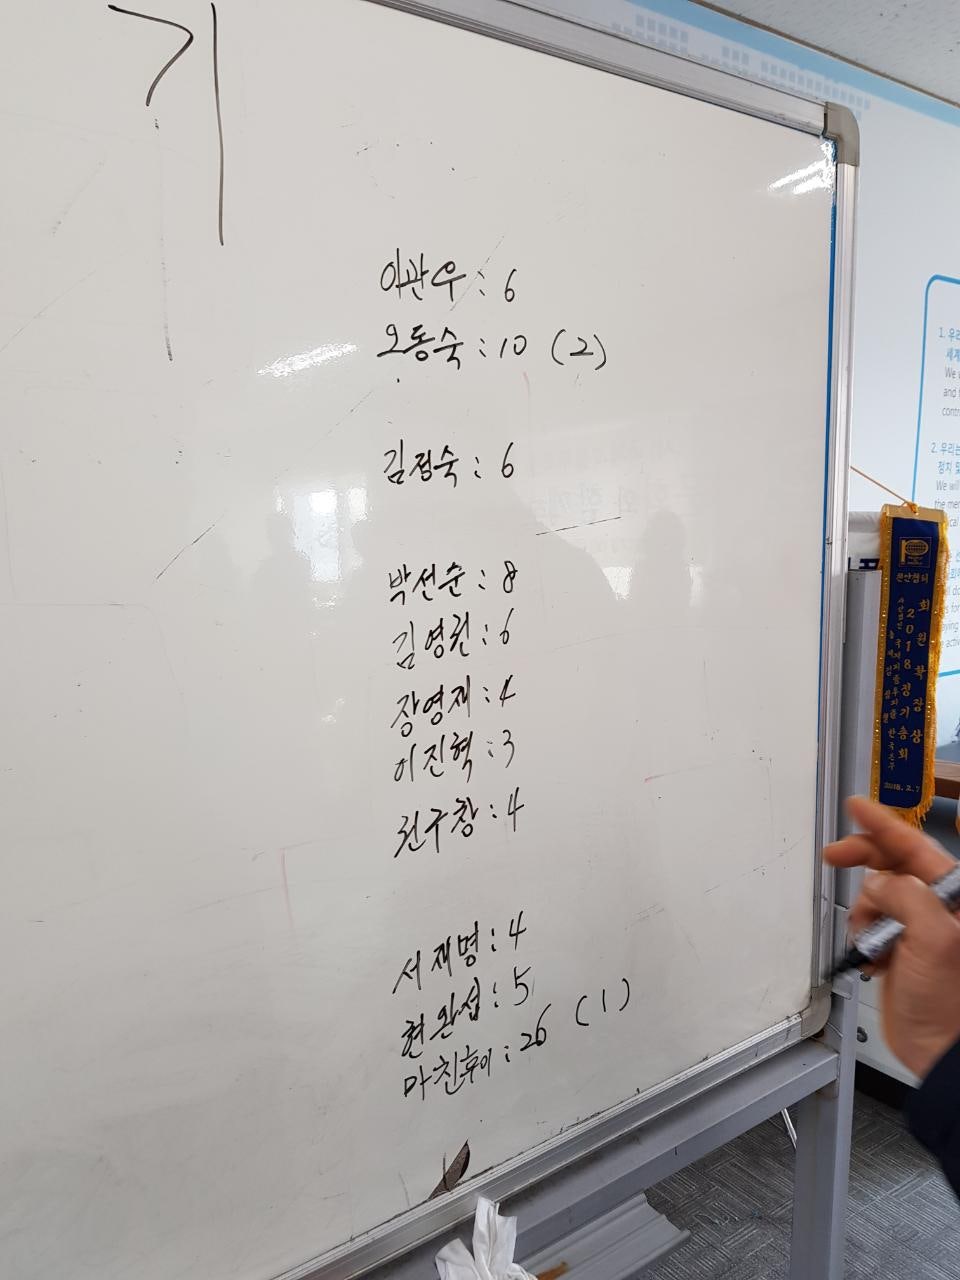 기
이관우 : 6
오동숙 : 10 (2)
김정숙 : 6
박선순 : 8
김영권 : 6
장영재 : 4
이진혁 : 3
권구창 : 4
서재명 : 4
현완섭 : 5
마친후이 : 26 (1)
1. 우리
세계
We w
and
contr
2. 우리는
정치 및
We will
the mer
회원확장상
2018정기총회
2018. 2. 7